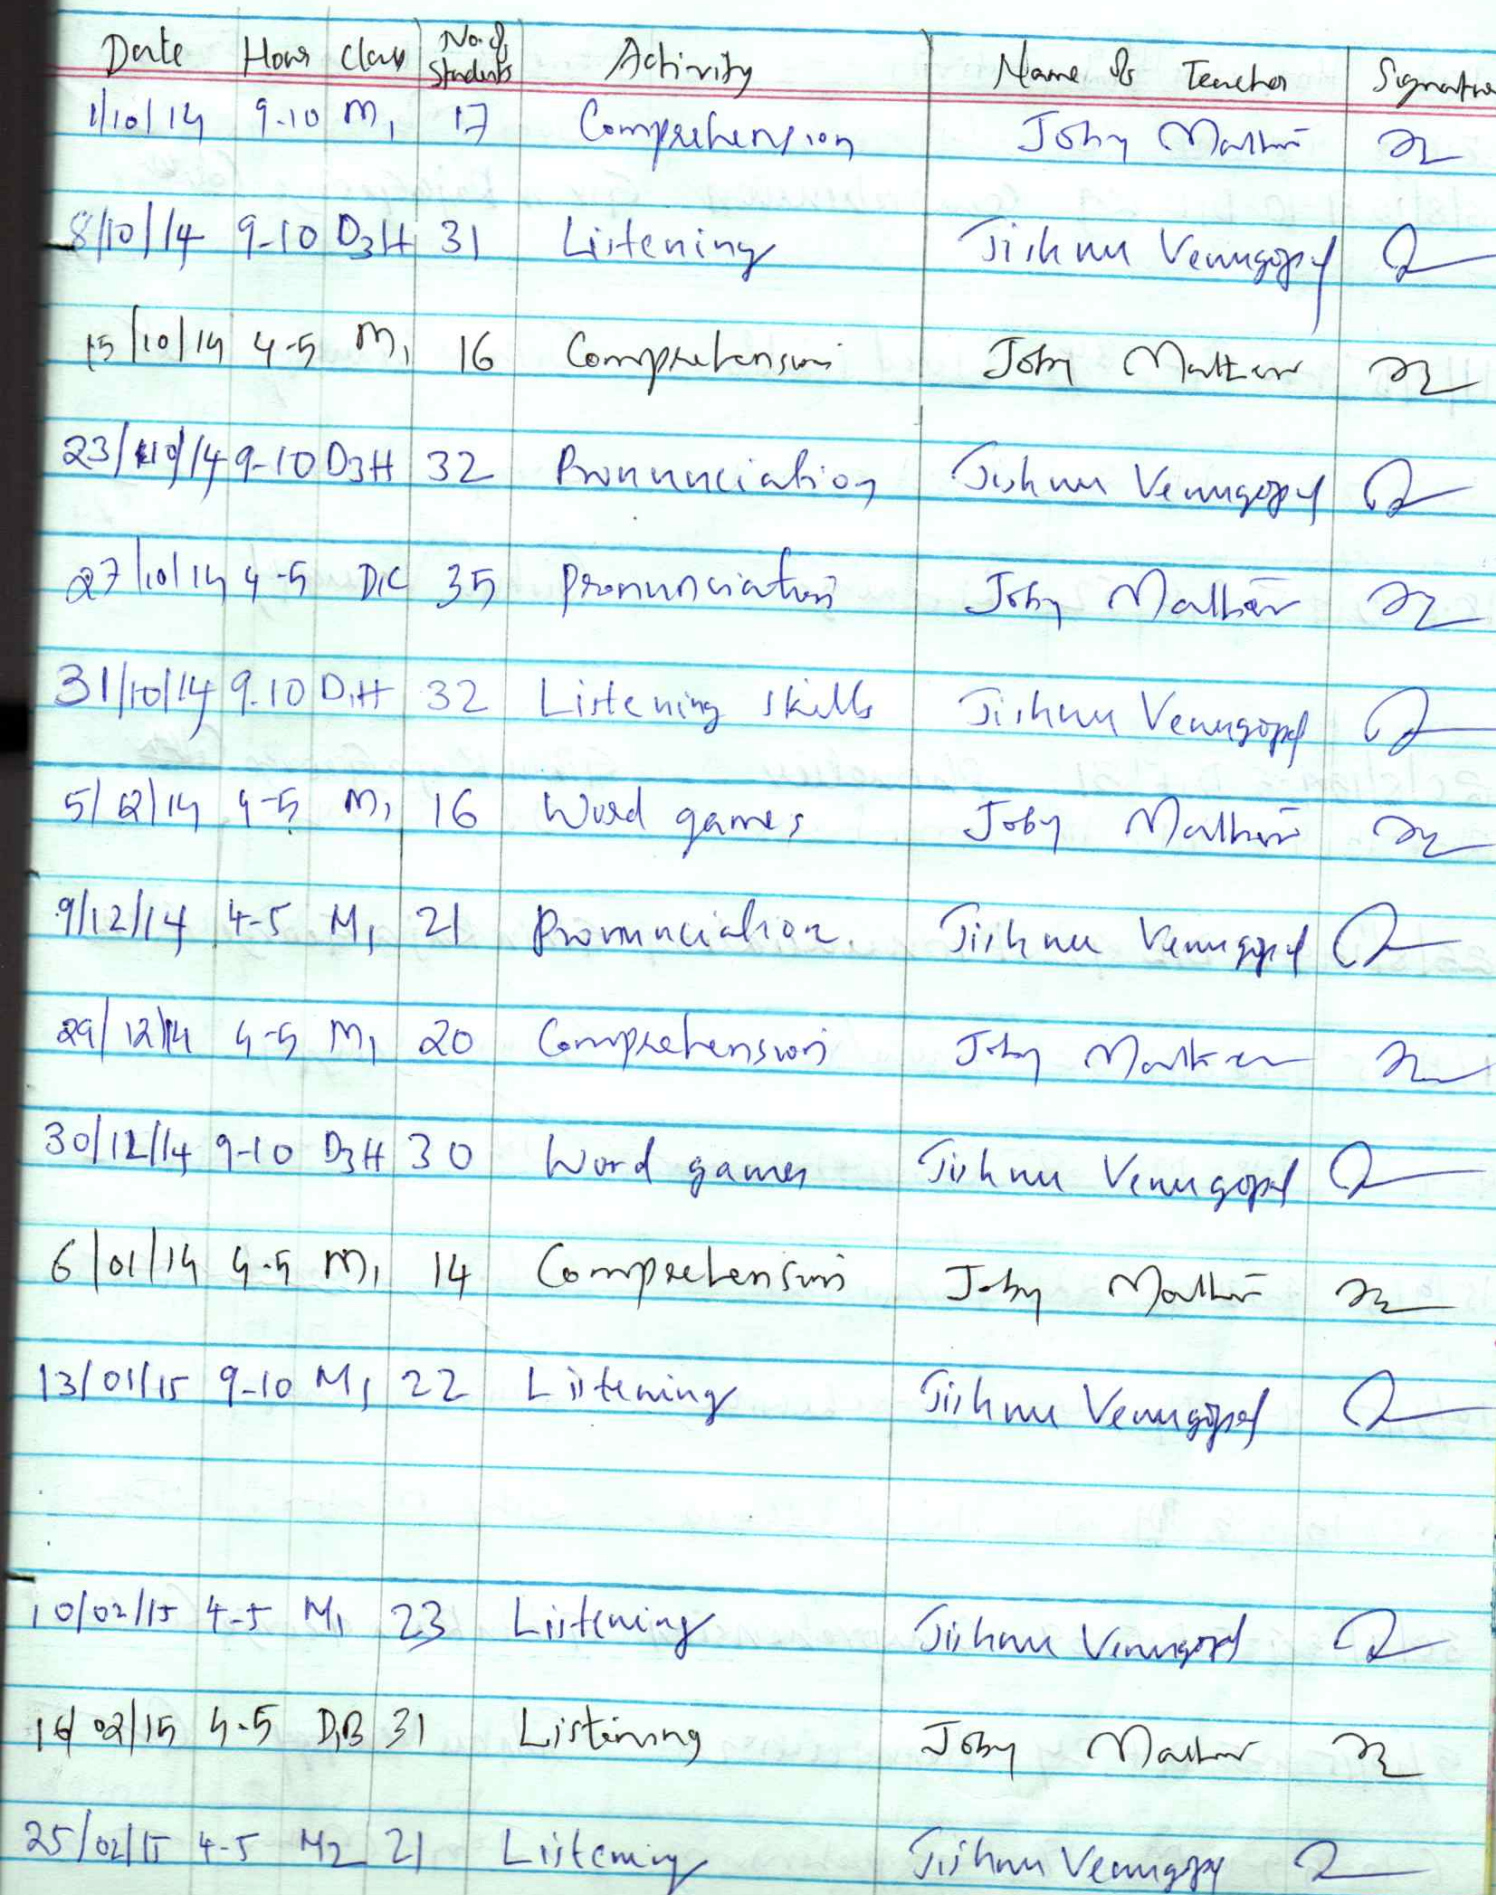 Date Hour Class No. of Students Activity Name of Teacher Signature
1/10/14 9-10 M1 17 Comprehension Joby Mathew
8/10/14 9-10 D3H 31 Listening Jishnu Venugopal
15/10/14 4-5 M1 16 Comprehension Joby Mathew
23/10/14 9-10 D3H 32 Pronunciation Jishnu Venugopal
27/10/14 4-5 D1C 35 Pronunciation Joby Mathew
31/10/14 9.10 D1H 32 Listening skills Jishnu Venugopal
5/12/14 4-5 M1 16 Word games Joby Mathew
9/12/14 4-5 M1 21 Pronunciation Jishnu Venugopal
29/12/14 4-5 M1 20 Comprehension Joby Mathew
30/12/14 9-10 D3H 30 Word games Jishnu Venugopal
6/01/14 4-5 M1 14 Comprehension Joby Mathew
13/01/15 9-10 M1 22 Listening Jishnu Venugopal
10/02/15 4-5 M1 23 Listening Jishnu Venugopal
16/02/15 4-5 D1B 31 Listining Joby Mathew
25/02/15 4-5 M2 21 Listening Jishnu Venugopal